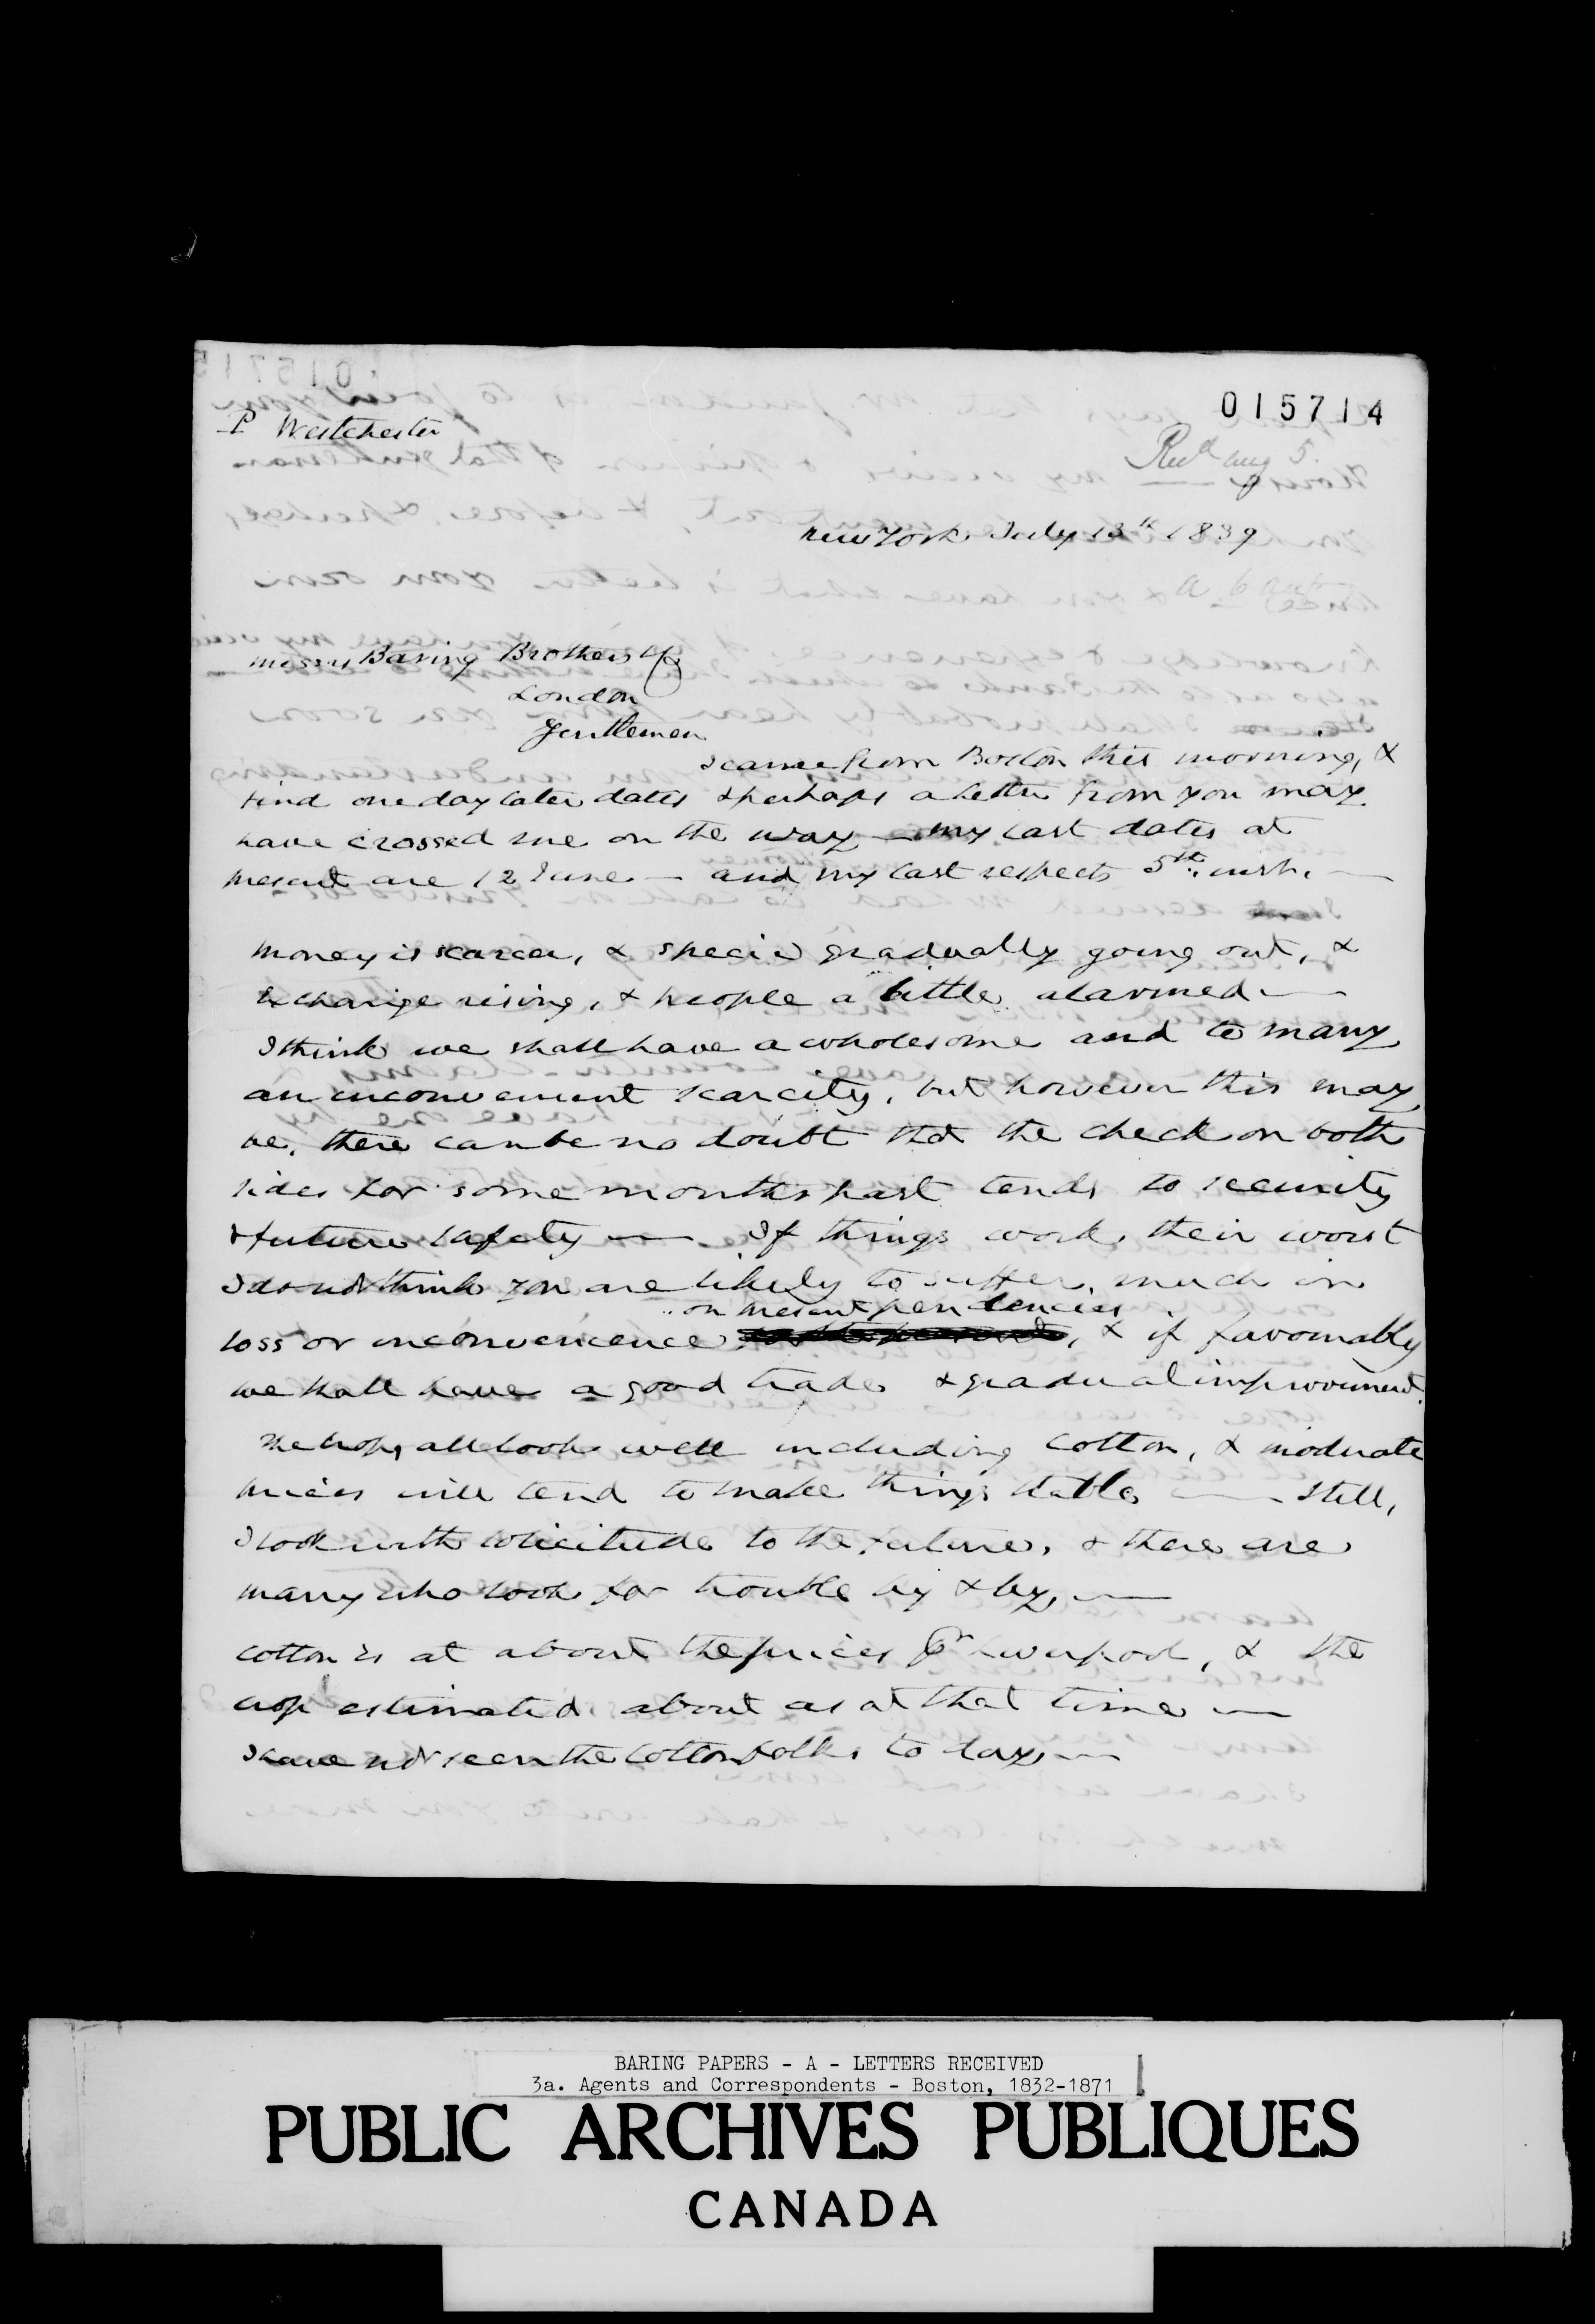 015714
P Westchester
Recd aug 5.
New York July 13th 1839
a. 6 aut
Messrs Baring Brothers & Co
London
Gentlemen
I came from Boston this morning, &
find one day later dates & perhaps a letter from you may
have crossed me on the way — my last dates at
present are 12 June — and my last respects 5th. inst. —
Money is scarcer, & specie gradually going out, &
Exchange rising, & people a little alarmed —
I think we shall have a wholesome and to many
an inconvenient scarcity, but however this may
be, there can be no doubt that the check on both
sides for some months past tends to security
& future safety — If things work their worst
I do not think you are likely to suffer much in
on present pendencies
loss or inconvenience, & if favourably
we shall have a good trade & gradual improvement.
The crops all look well including cotton, & moderate
prices will tend to make things stable — Still,
I look with solicitude to the future, & there are
many who look for trouble by & by, —
Cotton is at about the prices pr Liverpool, & the
crop estimated about as at that time —
I have not seen the Cotton folks to day, —
BARING PAPERS - A - LETTERS RECEIVED
3a. Agents and Correspondents - Boston, 1832-1871
PUBLIC ARCHIVES PUBLIQUES
CANADA